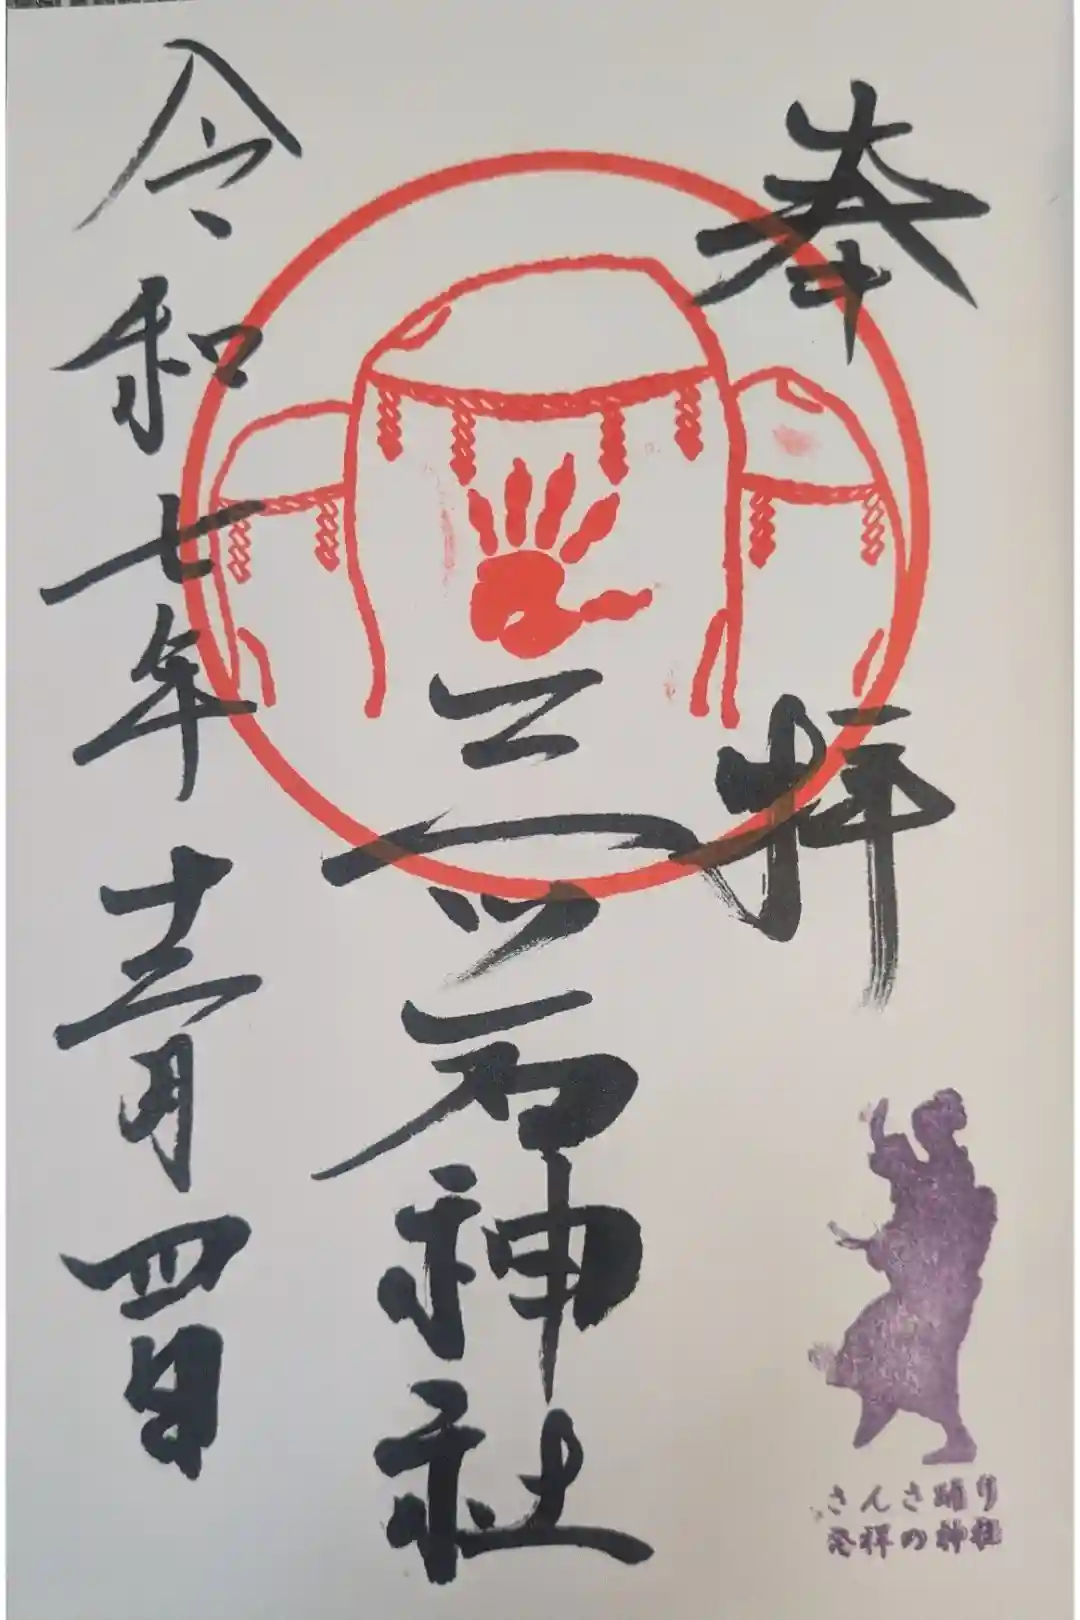 奉拝
さんさ踊り
発祥の神社
三ツ石神社
令和七年十二月四日